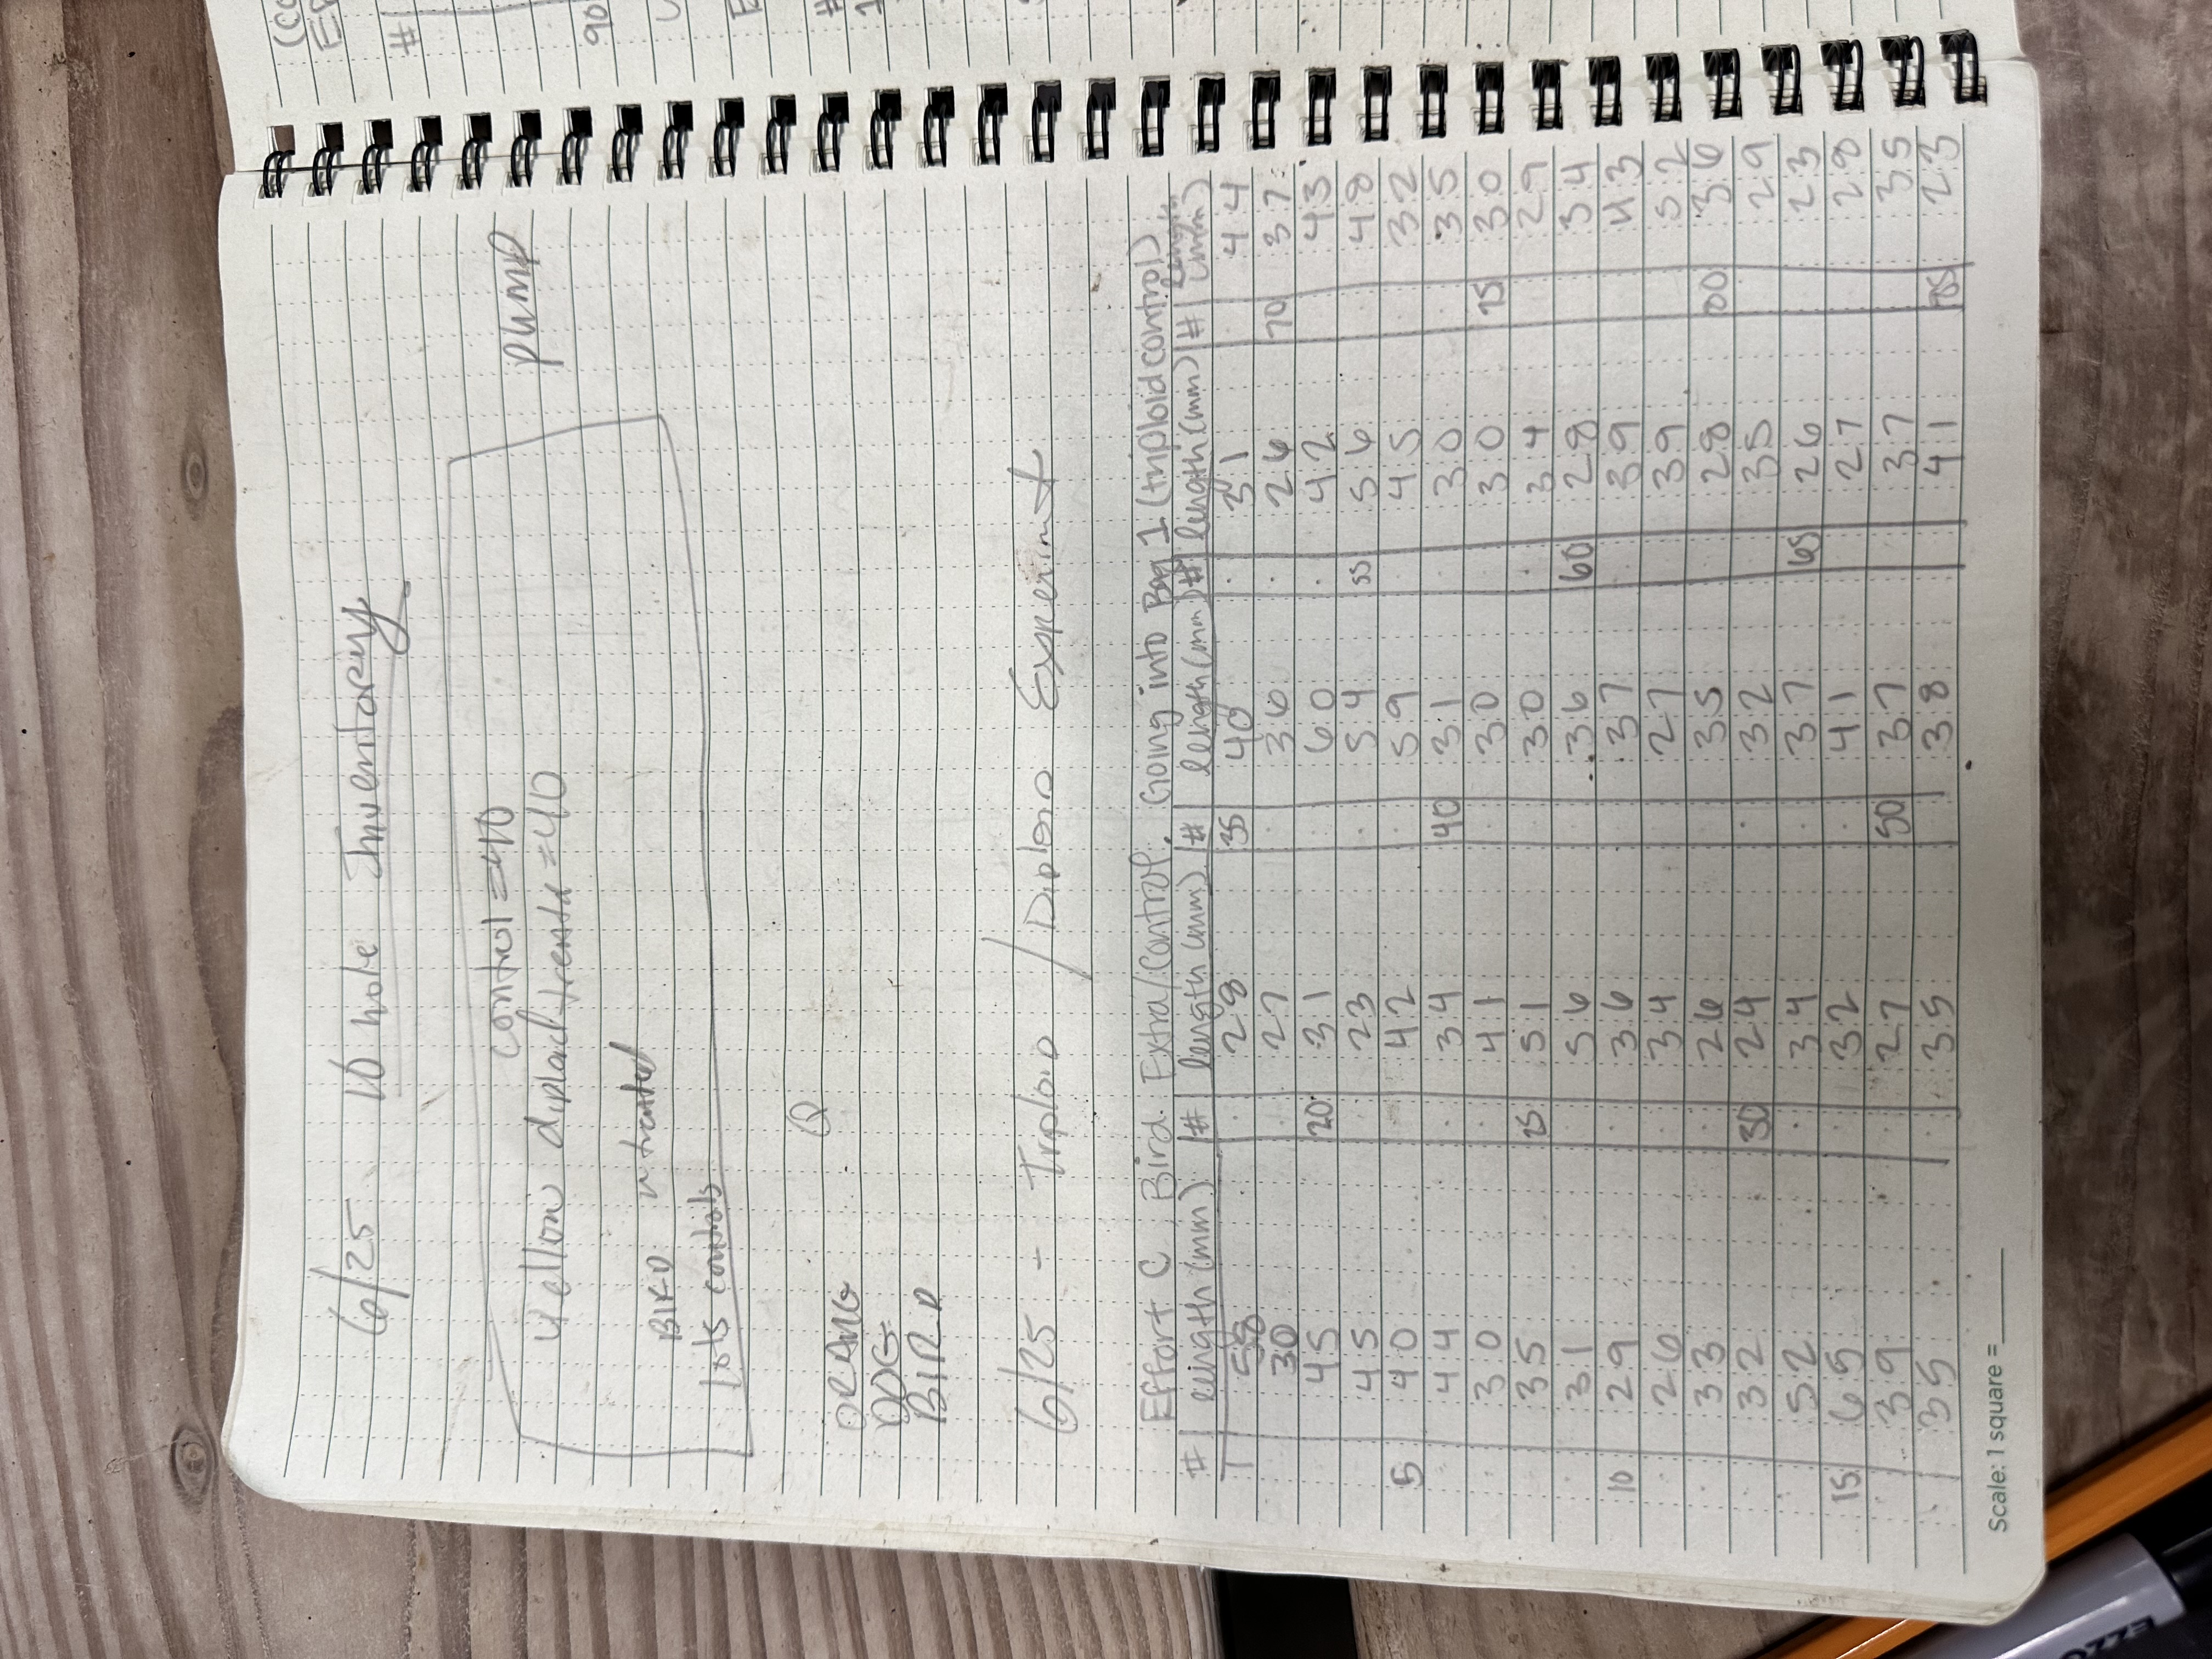 6/25 10 hole Inventory
control = 40
Yellow diploid treated = 40
pump
BIRD untreated
lots controls
Q
ORANG
DOG
BIRD
6/25 - Triploid / Diploid Experimt
Effort C, Bird. Extra/Control. Going into Bag 1 (triploid control)
# length (mm) # length (mm) # length (mm) # length (mm) # length (mm)
1 58 28 35 40 31 44
30 27 36 26 70 37
45 20 31 60 42 43
45 23 54 55 56 48
5 40 42 59 45 32
44 34 40 31 30 35
30 41 30 30 75 30
35 25 51 30 34 29
31 56 36 60 28 34
10 29 36 37 39 43
26 34 27 39 52
33 26 35 28 80 36
32 30 24 32 35 29
52 34 37 65 26 23
15 65 32 41 27 28
39 27 50 37 37 35
35 35 38 41 85 23
Scale: 1 square =
#
90
#
1